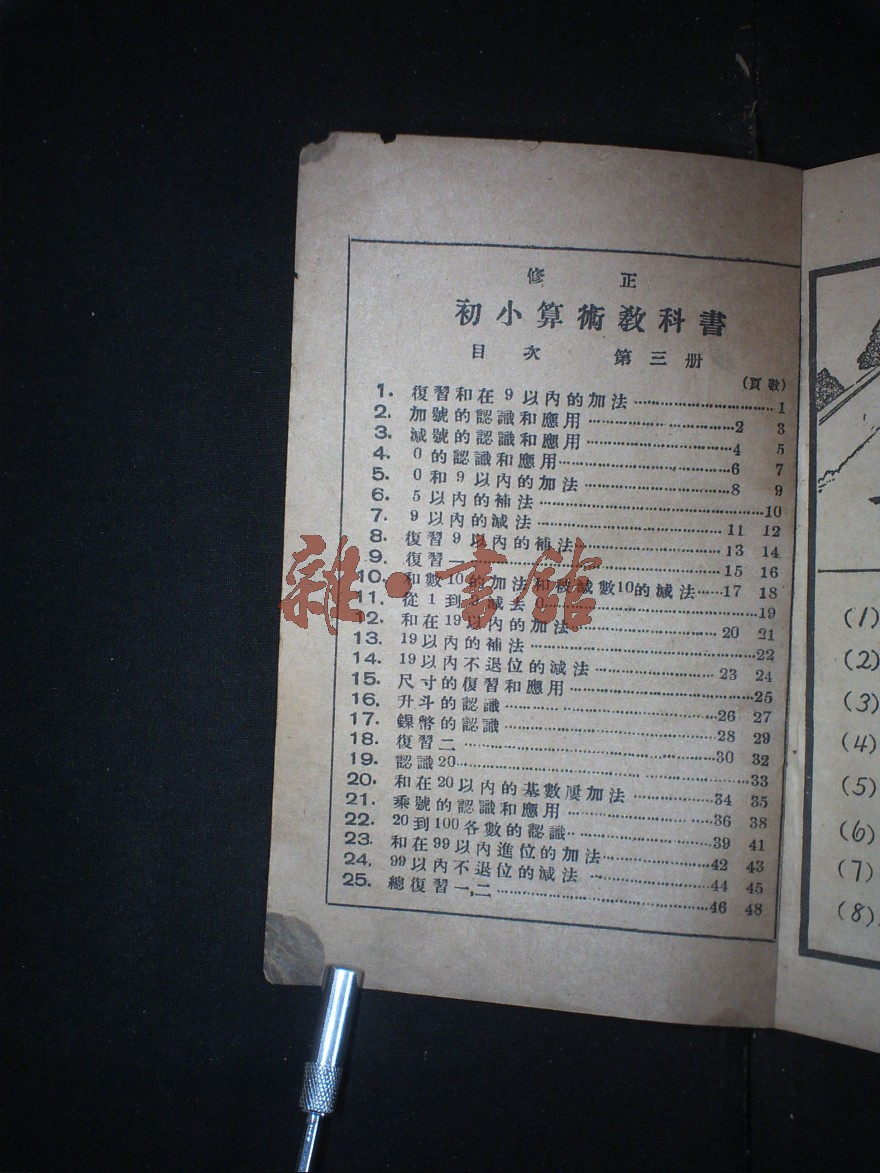 修 正
初小算術教科書
目 次 第三册
(頁數)
1. 復習和在9以內的加法……1
2. 加號的認識和應用……2 3
3. 減號的認識和應用……4 5
4. 0的認識和應用……6 7
5. 0和9以內的加法……8 9
6. 5以內的補法……10
7. 9以內的減法……11 12
8. 復習9以內的補法……13 14
9. 復習一……15 16
10. 和數10的加法和被減數10的減法……17 18
11. 從1到9減去0……19
12. 和在19以內的加法……20 21
13. 19以內的補法……22
14. 19以內不退位的減法……23 24
15. 尺寸的復習和應用……25
16. 升斗的認識……26 27
17. 鎳幣的認識……28 29
18. 復習二……30 32
19. 認識20……33
20. 和在20以內的基數屢加法……34 35
21. 乘號的認識和應用……36 38
22. 20到100各數的認識……39 41
23. 和在99以內進位的加法……42 43
24. 99以內不退位的減法……44 45
25. 總復習一,二……46 48
雜·書館
(1)
(2)
(3)
(4)
(5)
(6)
(7)
(8)